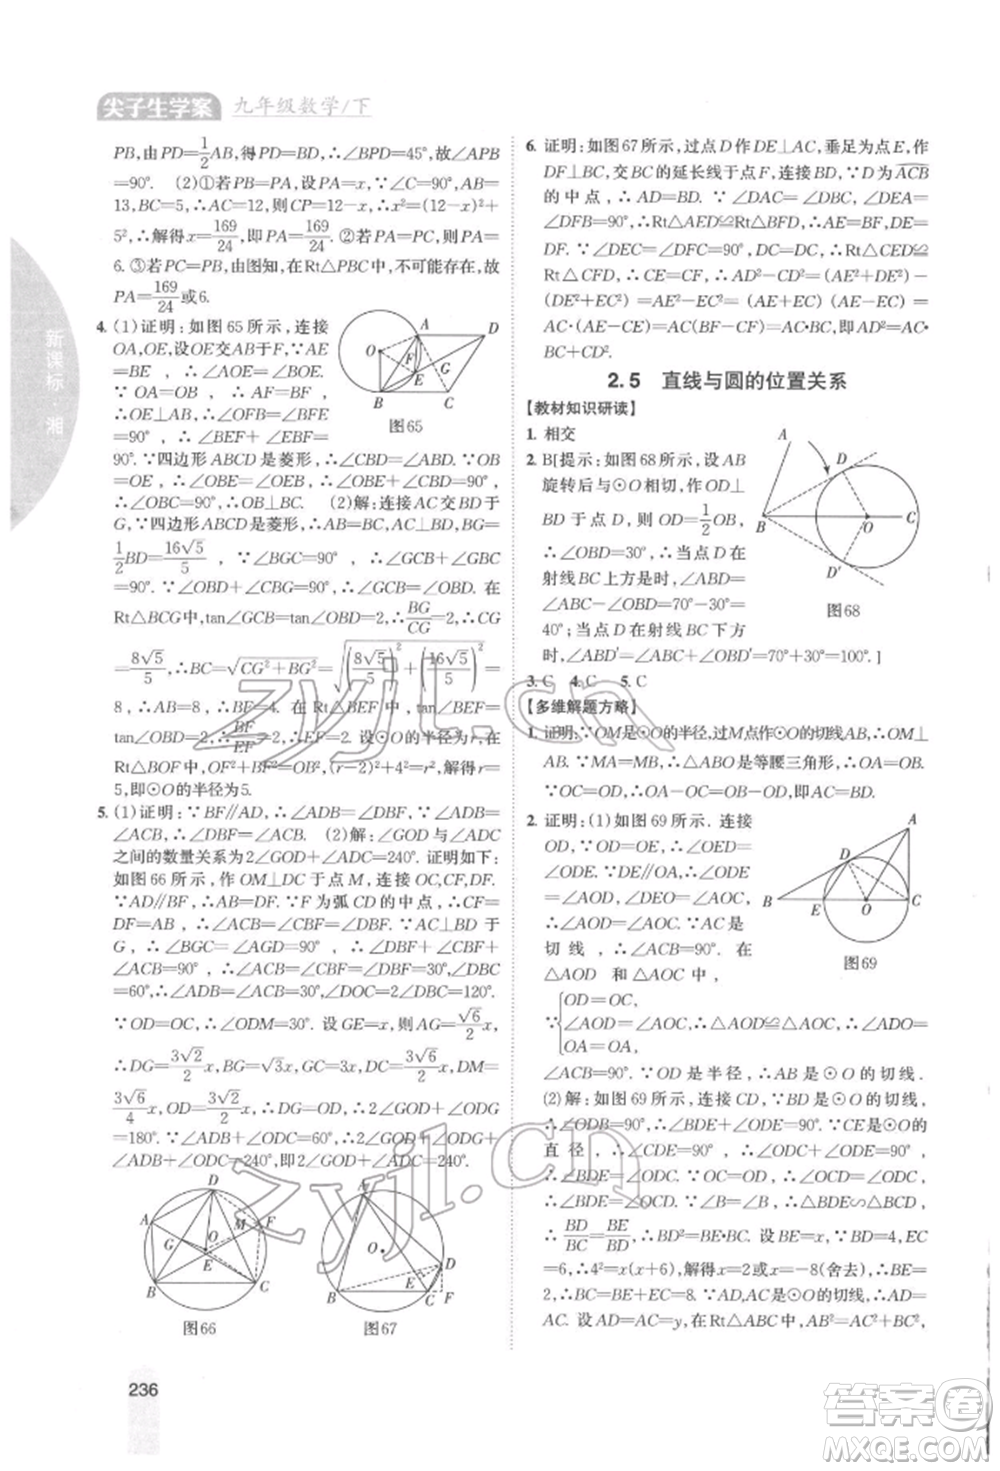 尖子生学案 九年级数学/下
PB,由PD=1/2AB,得BD=PD,∴∠BPD=45°,故∠APB
=90°. (2)①若PB=PA,设PA=x,∵∠C=90°,AB=
13,BC=5,∴AC=12,则CP=12-x,∴x²=(12-x)²+
5²,∴解得x=169/24,即PA=169/24;②若AC=PC,则PA=
6.③若PC=PB,由图知,在Rt△PBC中,不可能.故
PA=169/24或6.
4. (1)证明:如图65所示,连接
OA,OE,设OE交AB于F.∵AE=
BE,∴∠AOE=∠BOE.
∵OA=OB,∴∠BFO=
90°,∴∠BEF+∠EBF=
90°.∵四边形ABCD是菱形,∴∠EBF=∠CBE.∵OB=
OE,∴∠OBE=∠BEF,∴∠OBE+∠CBE=90°,即
∠OBC=90°,∴OB⊥BC. (2)解:连接AC交BD于
G,∵四边形ABCD是菱形,∴AC⊥BD,DG=BG=
1/2BD=16√5/5,∵∠BGC=90°,∴∠GCB+∠GBC=
90°.∵∠OBD+∠GBC=90°,∴∠GCB=∠OBD.在
Rt△BCG中,tan∠GCB=tan∠OBD=2,∴BG/CG=2,∴CG
=8√5/5,∴BC=√(CG²+BG²)=√((8√5/5)²+(16√5/5)²)=
8,∴AB=8,∴BF=4.在Rt△BEF中,tan∠BEF=
tan∠OBD=2,∴BF/EF=2,∴EF=2.设⊙O的半径为r,在
Rt△BOF中,OF²+BF²=OB²,∴(r-2)²+4²=r²,∴r=
5,即⊙O的半径为5.
图65
5. (1)证明:∵BF∥AD,∴∠ADB=∠DBF,∵∠ADB=
∠ACB,∴∠DBF=∠ACB. (2)解:∠GOD与∠ADC
之间的数量关系为2∠GOD+∠ADC=240°.证明如下:
如图66所示,作OM⊥DC于点M,连接OC.∵
AD∥BF,∴AB=DF.∵F为弧CD的中点,∴CF=
DF=AB,∴∠ACB=∠CBF=∠DBF.∵AC⊥BD于
G,∴∠BGC=∠AGD=90°,∴∠DBF+∠CBF+
∠ACB=90°,∴∠ACB=∠CBF=∠DBF=30°,∠BDC=
60°,∴∠ADB=∠ACB=30°,∠DOC=2∠DBC=120°.
∵OD=OC,∴∠ODM=30°.设GE=x,则AG=√6/2x,
∴DG=3√2/2x,BG=√3x=3x,∴CD=3√6/2x,DM=
3√6/4x,OD=3√2/2x,∴DG=OD,∴2∠GOD+∠ODG
=180°.∵∠ADB+∠BDC+∠ODC=∠ADC+∠ODG,∴2∠GOD+
∠ADB+∠ODC=240°,即2∠GOD+∠ADC=240°.
图66
图67
6. 证明:如图67所示,过点D作DE⊥AC,垂足为点E,作
DF⊥BC,交BC的延长线于点F,连接BD,∵D为ACB
的中点,∴AD=BD.∵∠DAC=∠DBC,∠DEA=
∠DFB=90°,∴Rt△AED≌Rt△BFD,∴AE=BF,DE=
DF.∵∠DEC=∠DFC=90°,DC=DC,∴Rt△DEC≌
Rt△CFD,∴CE=CD,∴AD²-CD²=(AE²+DE²)-
(DE²+EC²)=AE²-EC²=(AE+EC)·(AE-CE)=
AC·(AE-CE)=AC(BF-CF)=AC·BC,即AD²=AC·
BC+CD².
2.5 直线与圆的位置关系
【教材知识研读】
1. 相交
2. B[提示:如图68所示,设AB
旋转后与⊙O相切,作OD⊥
BD于点D,则OD=1/2OB,
∴∠OBD=30°,∴当点D在
射线BC上方是时,∠ABD=
∠ABO-∠OBD=70°-30°=
40°;当点D在射线BC下方
时,∠ABD′=∠ABO+∠OBD′=70°+30°=100°.]
图68
3. C 4. C 5. C
【多维解题方略】
1. 证明:∵OM是⊙O的半径,过M点作⊙O的切线AB,∴OM⊥
AB.∵MA=MB,∴△ABO是等腰三角形,∴OA=OB.
∵OC=OD,∴OA-OC=OB-OD,即AC=BD.
2. 证明:(1)如图69所示.连接
OD,∵OD=OE,∴∠OED=
∠ODE.∵DE∥OA,
∴∠AOD=∠ODE,
∠AOC=∠OED,
∴∠AOD=∠AOC.∵AC是
切线,∴∠ACB=90°.在
△AOD和△AOC中,
OD=OC,
∵∠AOD=∠AOC,∴△AOD≌△AOC,∴∠ADO=
OA=OA,
∠ACB=90°.∵OD是半径,∴AB是⊙O的切线.
(2)解:如图69所示,∵BD是⊙O的切线,
∴∠ODB=90°,∴∠BDE+∠ODE=90°.∵CE是⊙O的
直径,∴∠CDE=90°,∴∠ODC+∠ODE=90°,
∴∠BDE=∠ODC,∵OD=OC,∴∠OCD=∠ODC,
∴∠BDE=∠OCD.∵∠B=∠B,∴△BDE∽△BCD,
∴BD/BC=BE/BD.设BE=x,∵BD=4,EC=
6,∴4²=x(x+6),解得x=2或x=-8(舍去),∴BE=
2,∴BC=BE+EC=8.∵AD,AC是⊙O的切线,∴AD=
AC.设AD=AC=y,在Rt△ABC中,∵AB²=AC²+BC²,
图69
新课标·湘
236
zyjl.cn
zyjl.cn
答案圈
MXQE.COM